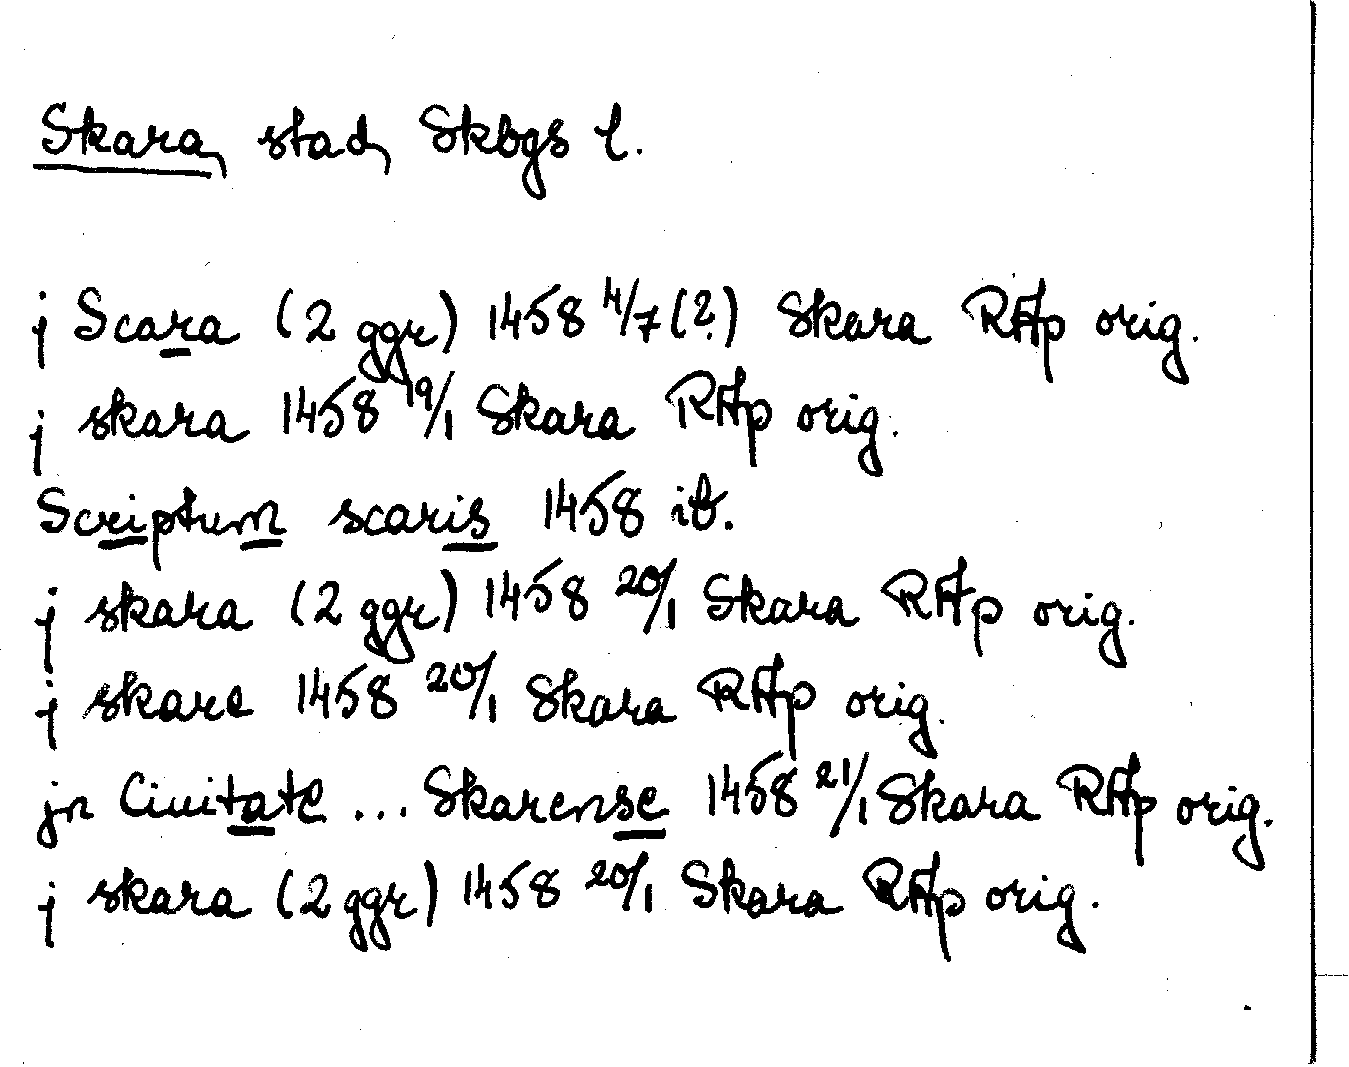 Skara, stad, Skbgs l.
j Scara (2 ggr) 1458 4/7 (?) Skara RAp orig.
j skara 1458 19/1 Skara RAp orig.
Scriptum scaris 1458 ib.
j skara (2 ggr) 1458 20/1 Skara RAp orig.
j skare 1458 20/1 Skara RAp orig.
jn Ciuitate ... Skarense 1458 21/1 Skara RAp orig.
j skara (2 ggr) 1458 20/1 Skara RAp orig.